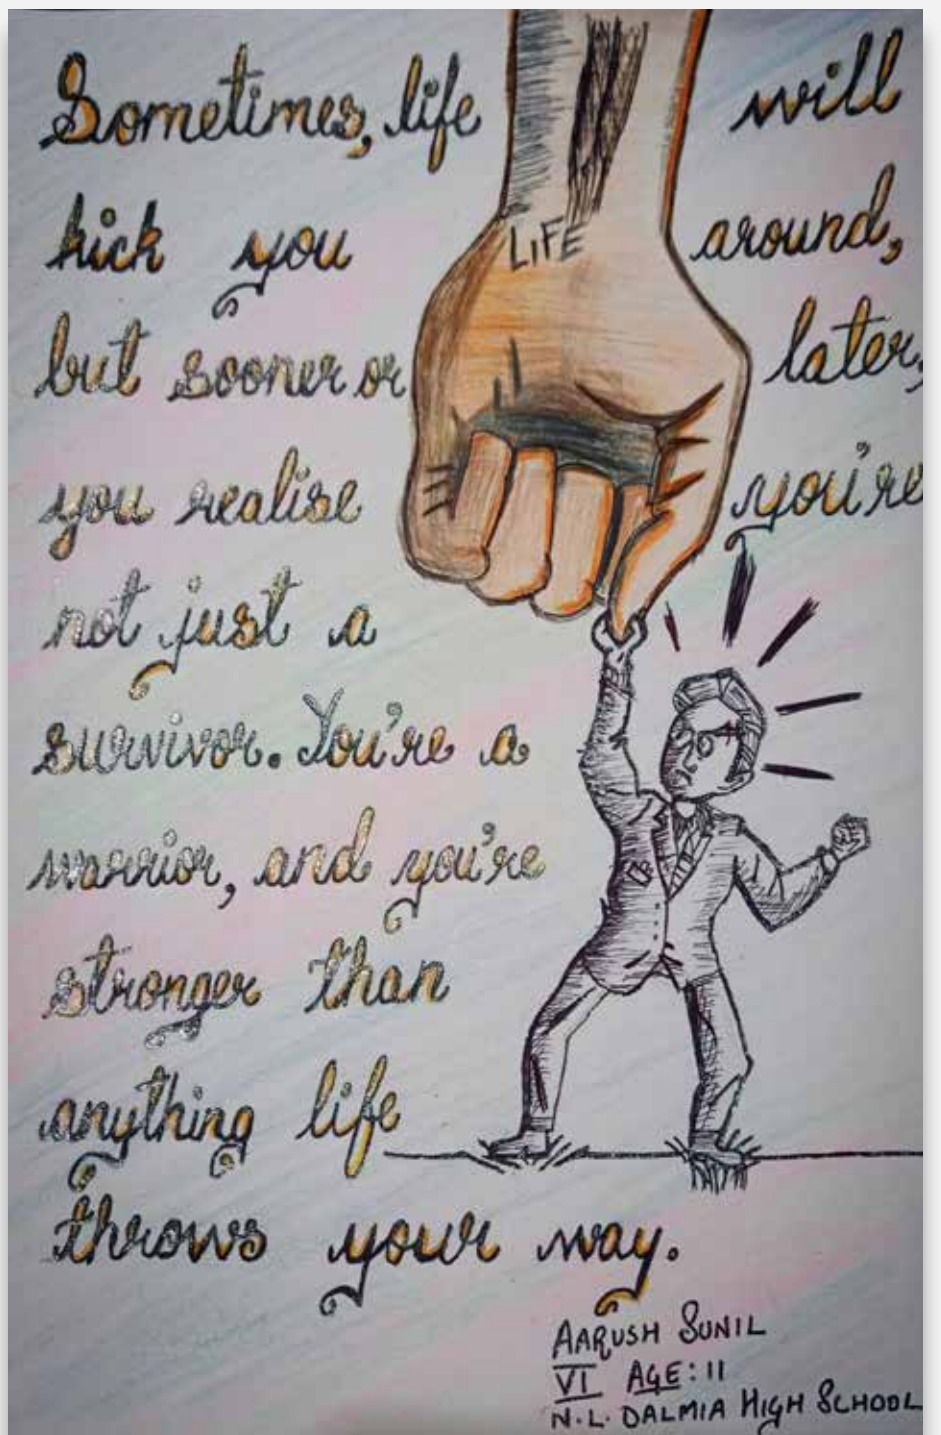 Sometimes, life will
kick you around,
LIFE
but sooner or later,
you realise you're
not just a
survivor. You're a
warrior, and you're
stronger than
anything life
throws your way.
AARUSH SUNIL
VI AGE: 11
N.L. DALMIA HIGH SCHOOL